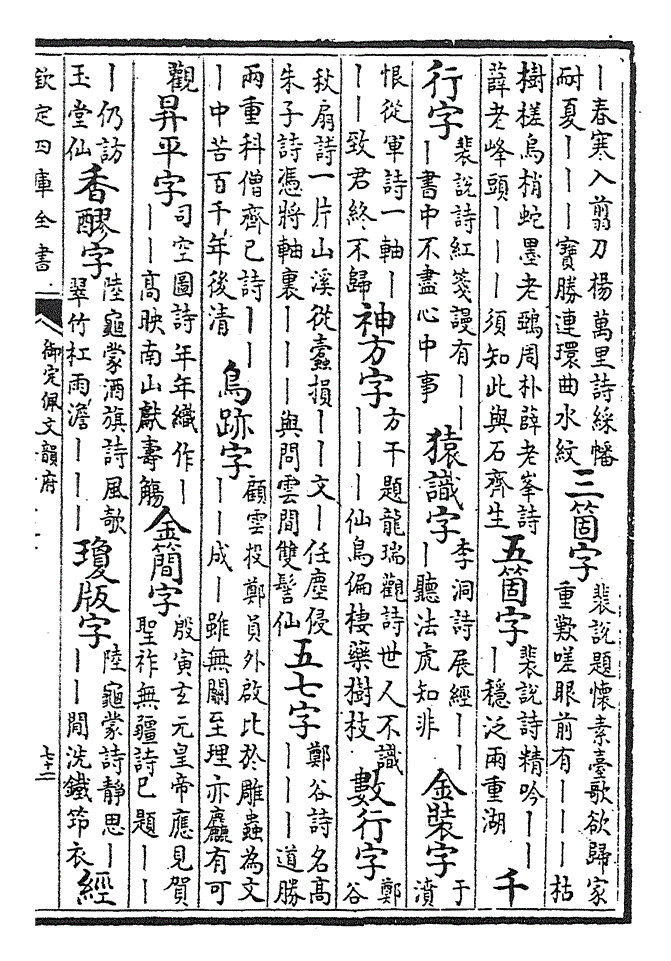 丨春寒入翦刀楊萬里詩綵幡
耐夏丨丨丨寶勝連環曲水紋
三箇字
裴說題懷素臺歌欲歸家
重歎嗟眼前有丨丨丨枯
樹槎烏梢蛇墨老鴟周朴薛老峯詩
薛老峰頭丨丨丨須知此與石齊生
五箇字
裴說詩精吟丨丨
丨穩泛兩重湖
千
行字
裴說詩紅箋謾有丨丨
丨書中不盡心中事
猿識字
李洞詩展經丨丨
丨聽法虎知非
金裝字
于
濆
恨從軍詩一軸丨
丨丨致君終不歸
神方字
方干題龍瑞觀詩世人不識
丨丨丨仙鳥偏棲藥樹枝
數行字
鄭
谷
秋扇詩一片山溪從蠹損丨丨文丨任塵侵
朱子詩憑將軸裏丨丨丨丨與問雲間雙髻仙
五七字
鄭谷詩名髙
丨丨丨道勝
兩重科僧齊己詩丨丨
丨中苦百千年後清
鳥跡字
顧雲投鄭員外啟比於雕蟲為文
丨丨成丨雖無關至理亦麤有可
觀
昇平字
司空圖詩年年織作丨
丨丨髙映南山獻壽觴
金簡字
殷寅玄元皇帝應見賀
聖祚無疆詩已題丨丨
丨仍訪
玉堂仙
香醪字
陸龜蒙酒旗詩風欹
翠竹杠雨澹丨丨丨
瓊版字
陸龜蒙詩靜思丨
丨丨間洗鐵筇衣
經
欽定四庫全書
御定佩文韻府
七十二